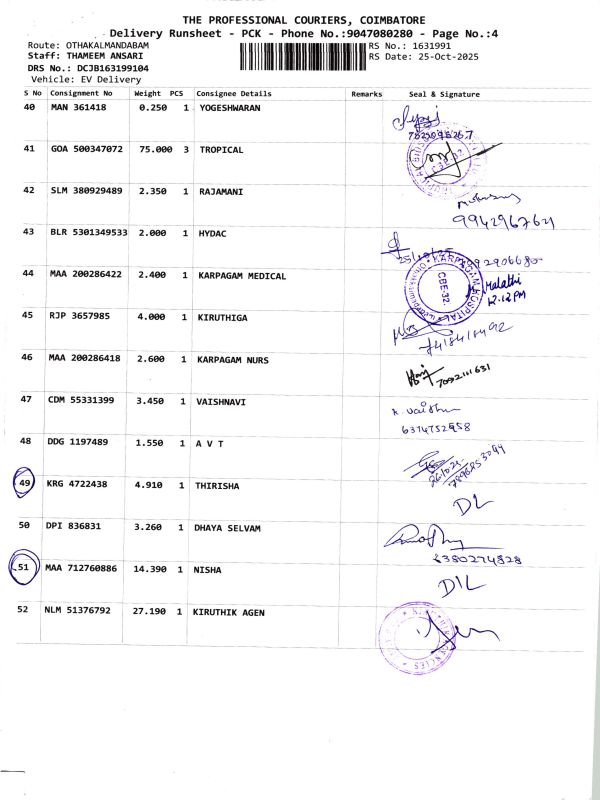 THE PROFESSIONAL COURIERS, COIMBATORE
Delivery Runsheet - PCK - Phone No.:9047080280 - Page No.:4
Route: OTHAKALMANDABAM RS No.: 1631991
Staff: THAMEEM ANSARI RS Date: 25-Oct-2025
DRS No.: DCJB163199104
Vehicle: EV Delivery
S No Consignment No Weight PCS Consignee Details Remarks Seal & Signature
40 MAN 361418 0.250 1 YOGESHWARAN
41 GOA 500347072 75.000 3 TROPICAL
CBE-32
42 SLM 380929489 2.350 1 RAJAMANI
9942967621
43 BLR 5301349533 2.000 1 HYDAC
44 MAA 200286422 2.400 1 KARPAGAM MEDICAL
KARPAGAM HOSPITAL
CBE-32.
Malathi
12.12 PM
45 RJP 3657985 4.000 1 KIRUTHIGA
7418418492
46 MAA 200286418 2.600 1 KARPAGAM NURS
7092111631
47 CDM 55331399 3.450 1 VAISHNAVI
K. Vaishnu
6374752958
48 DDG 1197489 1.550 1 A V T
49 KRG 4722438 4.910 1 THIRISHA
DL
50 DPI 836831 3.260 1 DHAYA SELVAM
6380274828
51 MAA 712760886 14.390 1 NISHA
DIL
52 NLM 51376792 27.190 1 KIRUTHIK AGEN